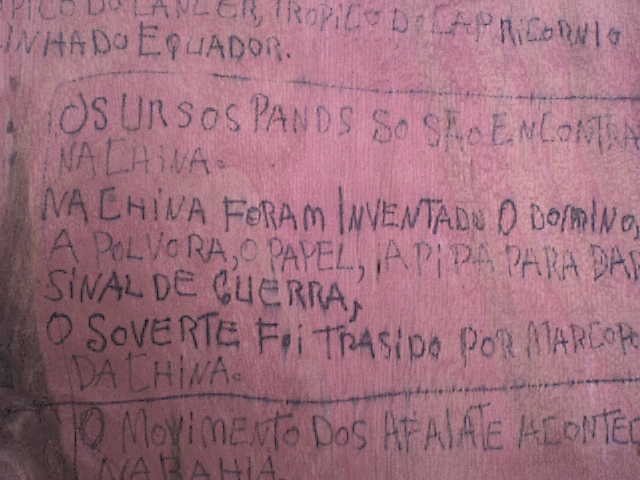 PICO DO CANCER, TROPICO DO CAPRICORNIO
LINHA DO EQUADOR.
OS URSOS PANDS SO SÃO ENCONTRA
NA CHINA.
NA CHINA FORAM INVENTADO O DOMINO,
A POLVORA, O PAPEL, A PIPA PARA DAR
SINAL DE GUERRA,
O SOVERTE FOI TRASIDO POR MARCOPO
DA CHINA.
O MOVIMENTO DOS AFAIATE ACONTEC
NA BAHIA.